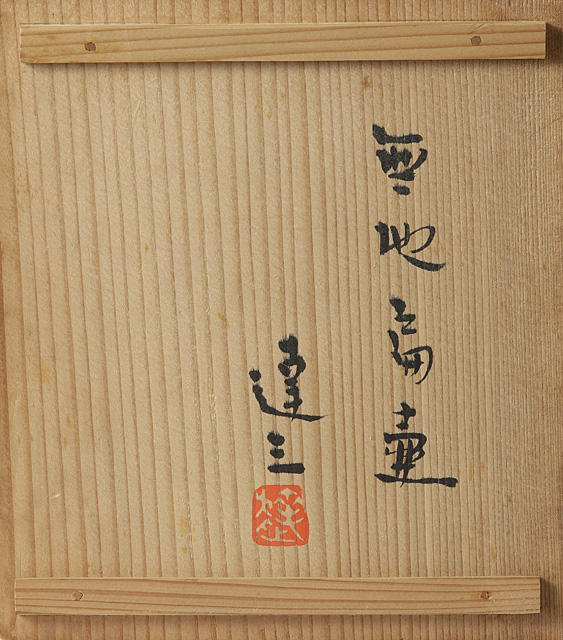 無地扁壷
達三